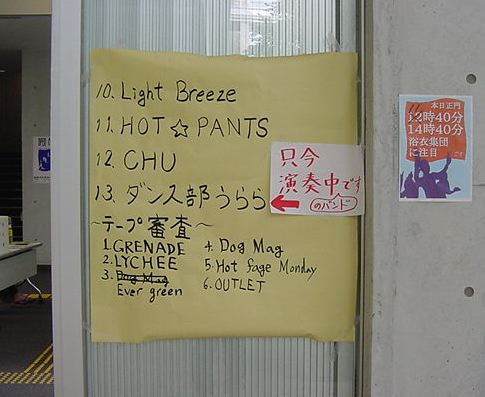 10. Light Breeze
11. HOT☆PANTS
12. CHU
13. ダンス部うらら
〜テープ審査〜
1. GRENADE
2. LYCHEE
3. Dog Mag
Ever green
4. Dog Mag
5. Hot fage Monday
6. OUTLET
只今
演奏中です
のバンド
本日正門
12時40分
14時40分
浴衣集団
に注目